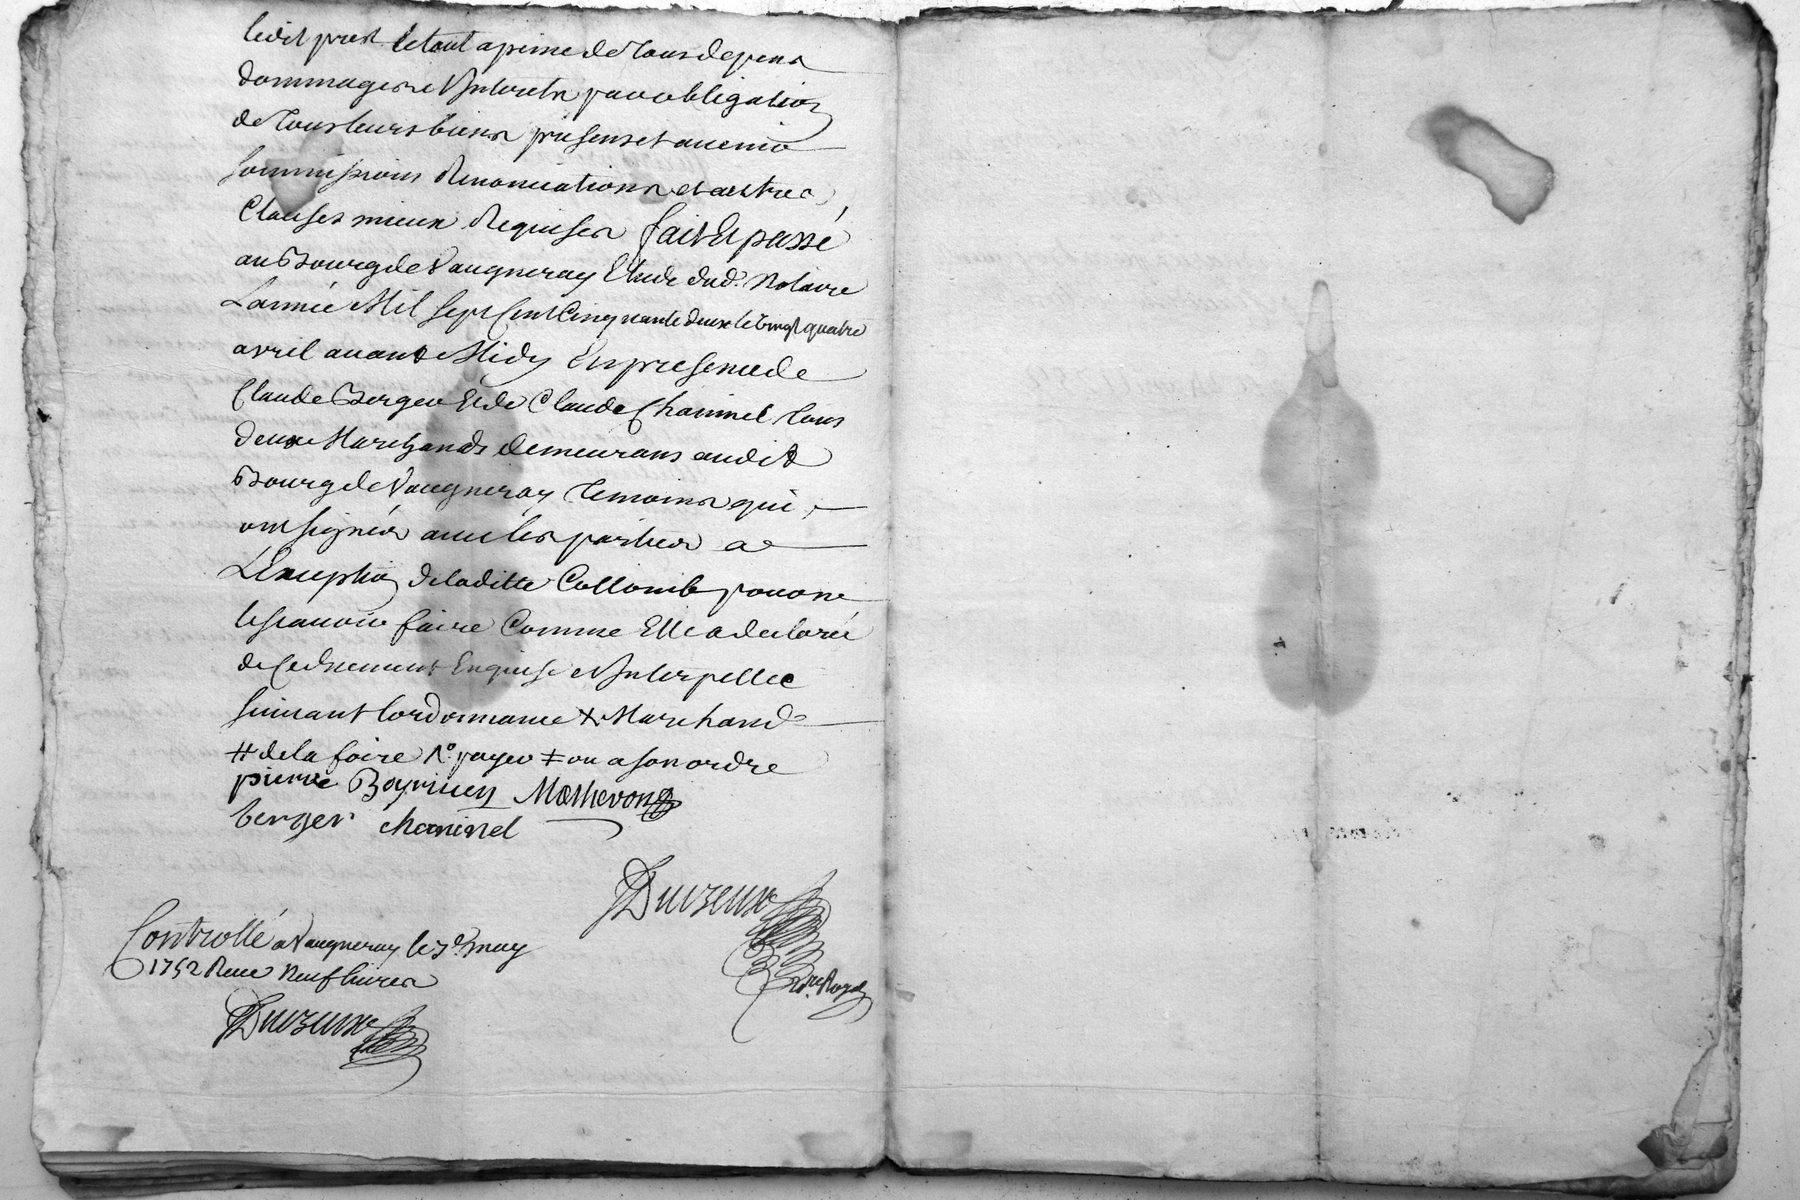 ledit prest le tout a peine de tous depens
dommages et Interets par obligation
de tous leurs biens presens et avenir
soumissions Renonciations et autres
Clauses mieux Requises fait Et passé
au Bourg de Vaugneray Etude dud. Notaire
L'année Mil sept Cent Cinquante deux le vingt quatre
avril avant Midy En presence de
Claude Berger Et de Claude Chaminel tous
deux Marchands demeurans audit
Bourg de Vaugneray temoins qui
ont signés avec les parties a
L'Exception de laditte Collomb pour ne
le scavoir faire Comme Elle a declarée
de Ce duement Enquise et Interpellée
suivant lordonnance + Marchand
# de la foire payer ‡ ou a son ordre
pierre Mathevon
berger chaminel
Controllé a Vaugneray le 7e may
1752 Receu Neuf livres